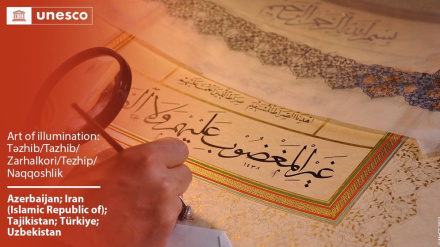 unesco
بسم الله الرحمن الرحيم
غير المغضوب عليهم ولا
١٤٣٨
Art of illumination:
Təzhib/Tazhib/
Zarhalkori/Tezhip/
Naqqoshlik
Azerbaijan; Iran
(Islamic Republic of);
Tajikistan; Türkiye;
Uzbekistan